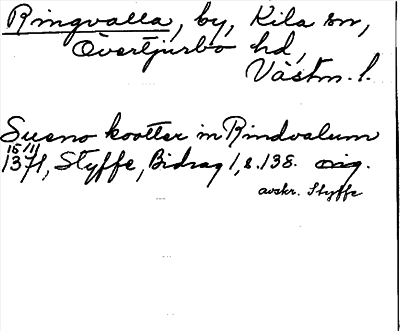 Ringvalla, by, Kila sn,
Övertjurbo hd,
Västm. l.
Sueno kootter in Rindvalum
15/11
1371, Styffe, Bidrag 1, s. 138. orig.
avskr. Styffe